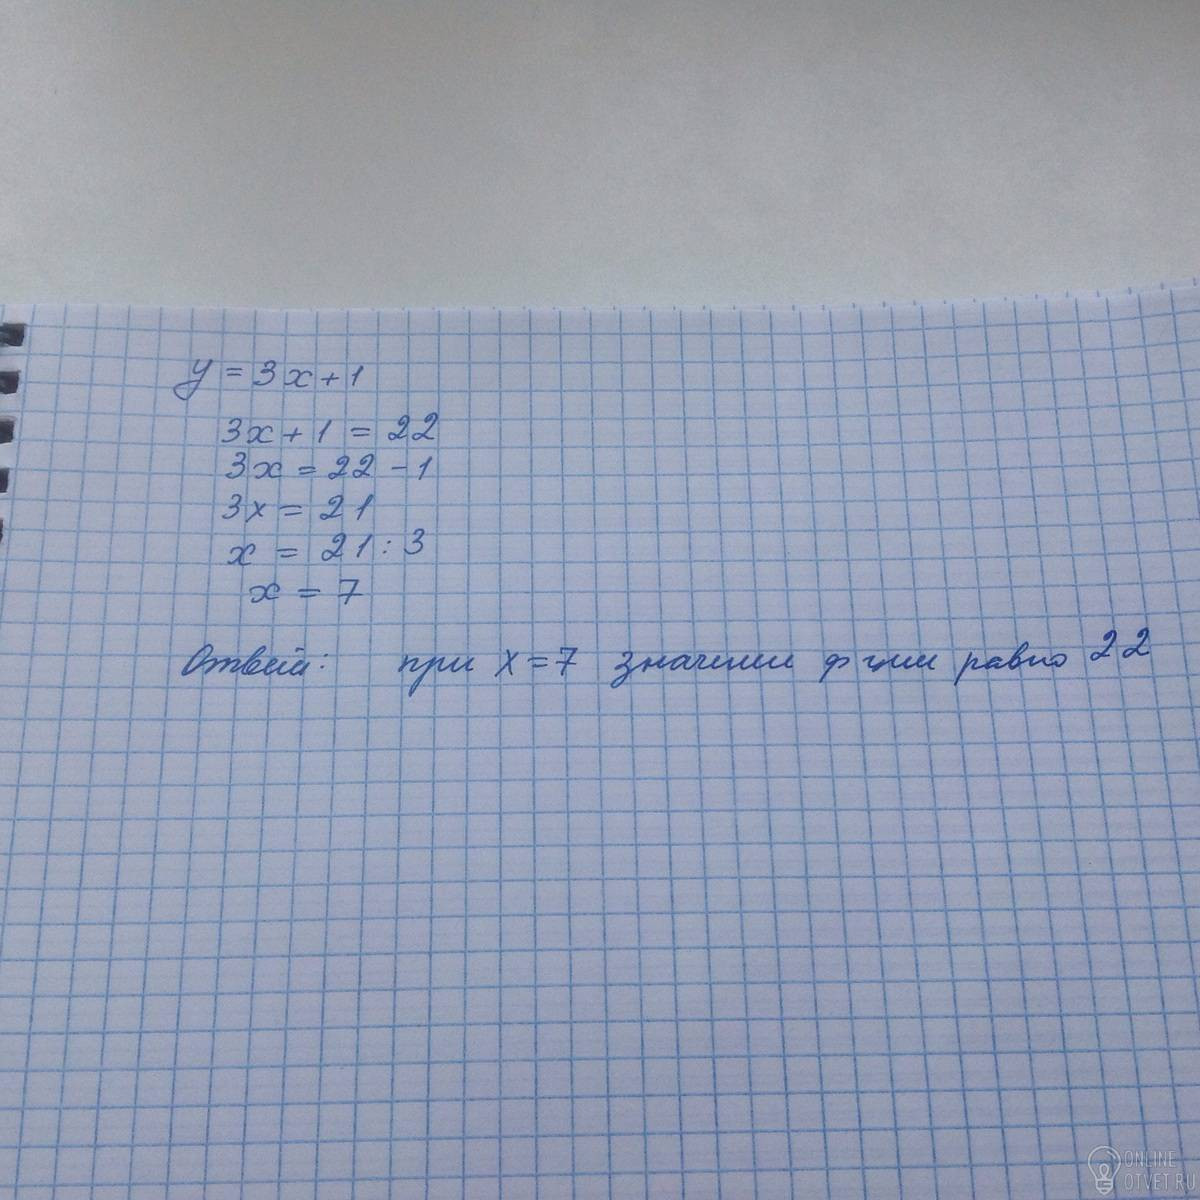 y = 3x + 1
3x + 1 = 22
3x = 22 - 1
3x = 21
x = 21 : 3
x = 7
Ответ: при x = 7 значении ф ции равно 22
ONLINE
OTVET.RU